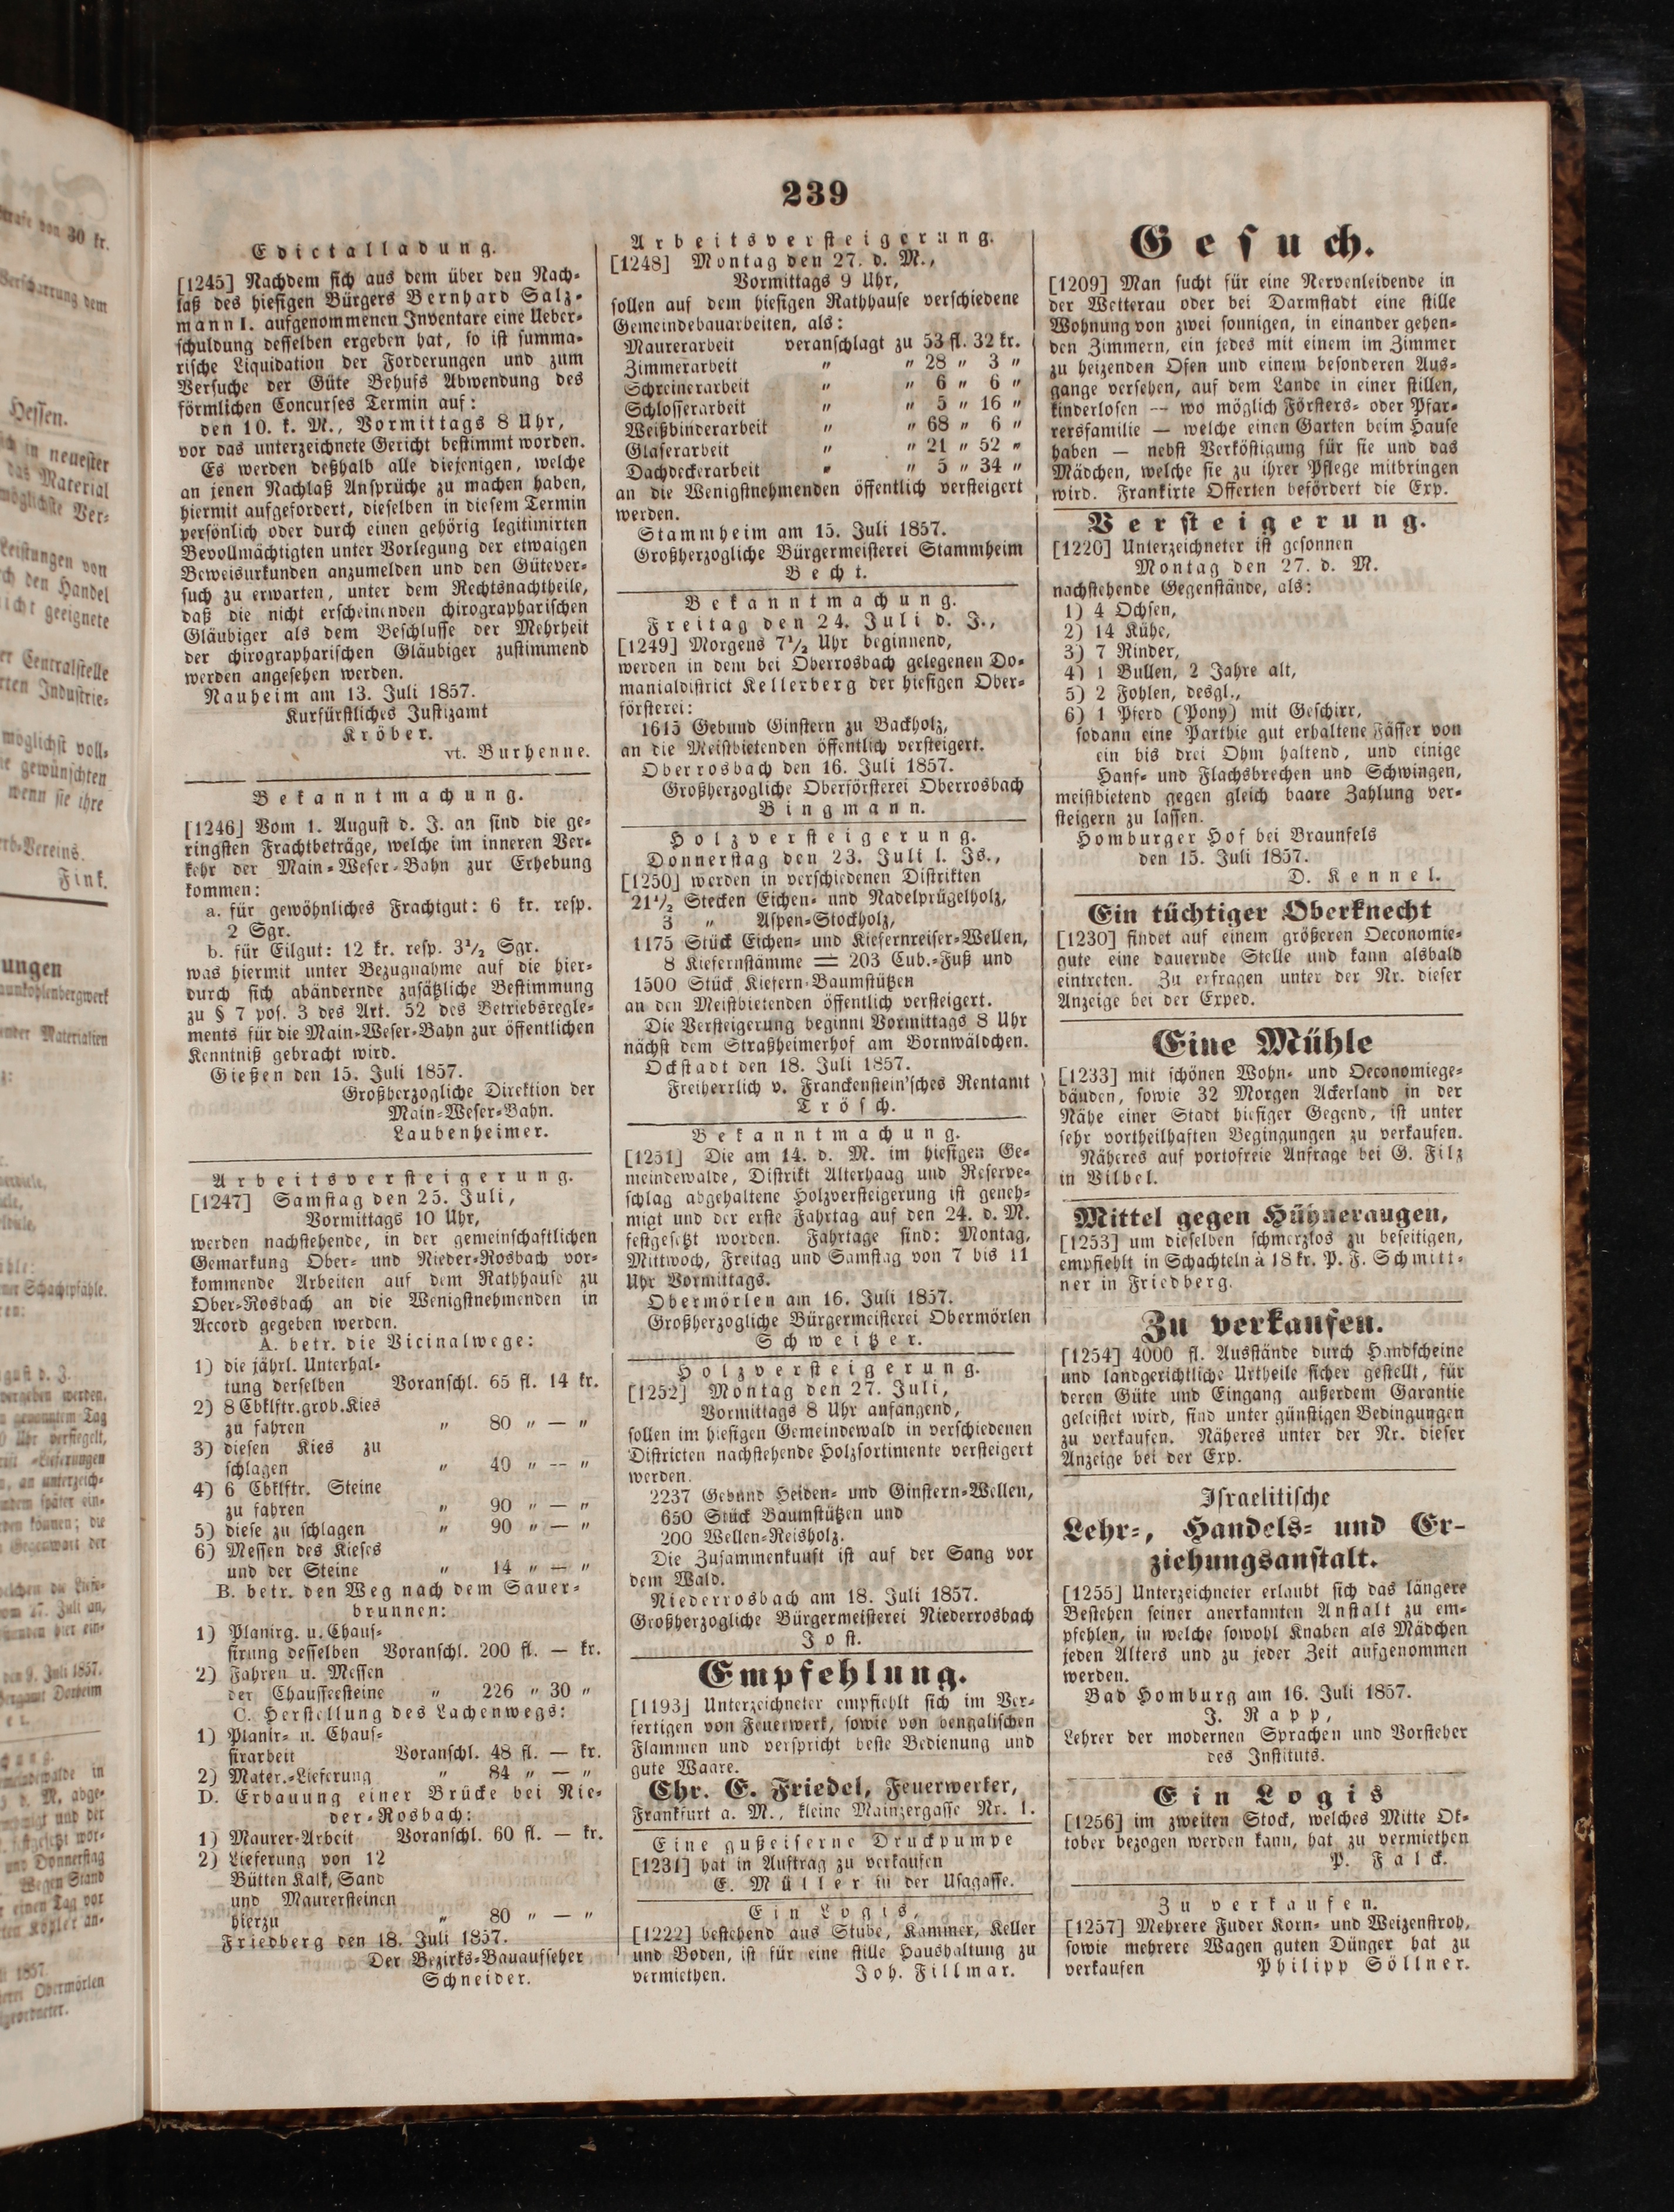 239
Edictalladung.
[1245] Nachdem sich aus dem über den Nach-
laß des hiesigen Bürgers Bernhard Salz-
mann I. aufgenommenen Inventare eine Ueber-
schuldung desselben ergeben hat, so ist summa-
rische Liquidation der Forderungen und zum
Versuche der Güte Behufs Abwendung des
förmlichen Concurses Termin auf:
den 10. k. M., Vormittags 8 Uhr,
vor das unterzeichnete Gericht bestimmt worden.
Es werden deßhalb alle diejenigen, welche
an jenen Nachlaß Ansprüche zu machen haben,
hiermit aufgefordert, dieselben in diesem Termin
persönlich oder durch einen gehörig legitimirten
Bevollmächtigten unter Vorlegung der etwaigen
Beweisurkunden anzumelden und den Gütever-
such zu erwarten, unter dem Rechtsnachtheile,
daß die nicht erscheinenden chirographarischen
Gläubiger als dem Beschlusse der Mehrheit
der chirographarischen Gläubiger zustimmend
werden angesehen werden.
Nauheim am 13. Juli 1857.
Kurfürstliches Justizamt
Kröber.
vt. Burhenne.
Bekanntmachung.
[1246] Vom 1. August d. J. an sind die ge-
ringsten Frachtbeträge, welche im inneren Ver-
kehr der Main-Weser-Bahn zur Erhebung
kommen:
a. für gewöhnliches Frachtgut: 6 kr. resp.
2 Sgr.
b. für Eilgut: 12 kr. resp. 3½ Sgr.
was hiermit unter Bezugnahme auf die hier-
durch sich abändernde zusätzliche Bestimmung
zu § 7 pos. 3 des Art. 52 des Betriebsregle-
ments für die Main-Weser-Bahn zur öffentlichen
Kenntniß gebracht wird.
Gießen den 15. Juli 1857.
Großherzogliche Direktion der
Main-Weser-Bahn.
Laubenheimer.
Arbeitsversteigerung.
[1247] Samstag den 25. Juli,
Vormittags 10 Uhr,
werden nachstehende, in der gemeinschaftlichen
Gemarkung Ober- und Nieder-Rosbach vor-
kommende Arbeiten auf dem Rathhause zu
Ober-Rosbach an die Wenigstnehmenden in
Accord gegeben werden.
A. betr. die Vicinalwege:
1) die jährl. Unterhal-
tung derselben Voranschl. 65 fl. 14 kr.
2) 8 Cbklftr. grob. Kies
zu fahren " 80 " — "
3) diesen Kies zu
schlagen " 40 " -- "
4) 6 Cbklftr. Steine
zu fahren " 90 " — "
5) diese zu schlagen " 90 " — "
6) Messen des Kieses
und der Steine " 14 " — "
B. betr. den Weg nach dem Sauer-
brunnen:
1) Planirg. u. Chaus-
sirung desselben Voranschl. 200 fl. — kr.
2) Fahren u. Messen
der Chausseesteine " 226 " 30 "
C. Herstellung des Lachenwegs:
1) Planir- u. Chaus-
sirarbeit Voranschl. 48 fl. — kr.
2) Mater.-Lieferung " 84 " — "
D. Erbauung einer Brücke bei Nie-
der-Rosbach:
1) Maurer-Arbeit Voranschl. 60 fl. — kr.
2) Lieferung von 12
Bütten Kalk, Sand
und Maurersteinen
hierzu " 80 " — "
Friedberg den 18. Juli 1857.
Der Bezirks-Bauaufseher
Schneider.
Arbeitsversteigerung.
[1248] Montag den 27. d. M.,
Vormittags 9 Uhr,
sollen auf dem hiesigen Rathhause verschiedene
Gemeindebauarbeiten, als:
Maurerarbeit veranschlagt zu 53 fl. 32 kr.
Zimmerarbeit " " 28 " 3 "
Schreinerarbeit " " 6 " 6 "
Schlosserarbeit " " 5 " 16 "
Weißbinderarbeit " " 68 " 6 "
Glaserarbeit " " 21 " 52 "
Dachdeckerarbeit " " 5 " 34 "
an die Wenigstnehmenden öffentlich versteigert
werden.
Stammheim am 15. Juli 1857.
Großherzogliche Bürgermeisterei Stammheim
Becht.
Bekanntmachung.
Freitag den 24. Juli d. J.,
[1249] Morgens 7½ Uhr beginnend,
werden in dem bei Oberrosbach gelegenen Do-
manialdistrict Kellerberg der hiesigen Ober-
försterei:
1615 Gebund Ginstern zu Backholz,
an die Meistbietenden öffentlich versteigert.
Oberrosbach den 16. Juli 1857.
Großherzogliche Oberförsterei Oberrosbach
Bingmann.
Holzversteigerung.
Donnerstag den 23. Juli l. Js.,
[1250] werden in verschiedenen Distrikten
21½ Stecken Eichen- und Nadelprügelholz,
3 " Aspen-Stockholz,
1175 Stück Eichen- und Kiefernreiser-Wellen,
8 Kiefernstämme = 203 Cub.-Fuß und
1500 Stück Kiefern-Baumstützen
an den Meistbietenden öffentlich versteigert.
Die Versteigerung beginnt Vormittags 8 Uhr
nächst dem Straßheimerhof am Bornwäldchen.
Ockstadt den 18. Juli 1857.
Freiherrlich v. Franckenstein'sches Rentamt
Trösch.
Bekanntmachung.
[1251] Die am 14. d. M. im hiesigen Ge-
meindewalde, Distrikt Alterhaag und Reserve-
schlag abgehaltene Holzversteigerung ist geneh-
migt und der erste Fahrtag auf den 24. d. M.
festgesetzt worden. Fahrtage sind: Montag,
Mittwoch, Freitag und Samstag von 7 bis 11
Uhr Vormittags.
Obermörlen am 16. Juli 1857.
Großherzogliche Bürgermeisterei Obermörlen
Schweitzer.
Holzversteigerung.
[1252] Montag den 27. Juli,
Vormittags 8 Uhr anfangend,
sollen im hiesigen Gemeindewald in verschiedenen
Districten nachstehende Holzsortimente versteigert
werden.
2237 Gebund Heiden- und Ginstern-Wellen,
650 Stück Baumstützen und
200 Wellen-Reisholz.
Die Zusammenkunft ist auf der Sang vor
dem Wald.
Niederrosbach am 18. Juli 1857.
Großherzogliche Bürgermeisterei Niederrosbach
Jost.
Empfehlung.
[1193] Unterzeichneter empfiehlt sich im Ver-
fertigen von Feuerwerk, sowie von bengalischen
Flammen und verspricht beste Bedienung und
gute Waare.
Chr. E. Friedel, Feuerwerker,
Frankfurt a. M., kleine Mainzergasse Nr. 1.
Eine gußeiserne Druckpumpe
[1231] hat in Auftrag zu verkaufen
E. Müller in der Usagasse.
Ein Logis,
[1222] bestehend aus Stube, Kammer, Keller
und Boden, ist für eine stille Haushaltung zu
vermiethen. Joh. Fillmar.
Gesuch.
[1209] Man sucht für eine Nervenleidende in
der Wetterau oder bei Darmstadt eine stille
Wohnung von zwei sonnigen, in einander gehen-
den Zimmern, ein jedes mit einem im Zimmer
zu heizenden Ofen und einem besonderen Aus-
gange versehen, auf dem Lande in einer stillen,
kinderlosen — wo möglich Försters- oder Pfar-
rersfamilie — welche einen Garten beim Hause
haben — nebst Verköstigung für sie und das
Mädchen, welche sie zu ihrer Pflege mitbringen
wird. Frankirte Offerten befördert die Exp.
Versteigerung.
[1220] Unterzeichneter ist gesonnen
Montag den 27. d. M.
nachstehende Gegenstände, als:
1) 4 Ochsen,
2) 14 Kühe,
3) 7 Rinder,
4) 1 Bullen, 2 Jahre alt,
5) 2 Fohlen, desgl.,
6) 1 Pferd (Pony) mit Geschirr,
sodann eine Parthie gut erhaltene Fässer von
ein bis drei Ohm haltend, und einige
Hanf- und Flachsbrechen und Schwingen,
meistbietend gegen gleich baare Zahlung ver-
steigern zu lassen.
Homburger Hof bei Braunfels
den 15. Juli 1857.
D. Kennel.
Ein tüchtiger Oberknecht
[1230] findet auf einem größeren Oeconomie-
gute eine dauernde Stelle und kann alsbald
eintreten. Zu erfragen unter der Nr. dieser
Anzeige bei der Exped.
Eine Mühle
[1233] mit schönen Wohn- und Oeconomiege-
bäuden, sowie 32 Morgen Ackerland in der
Nähe einer Stadt hiesiger Gegend, ist unter
sehr vortheilhaften Begingungen zu verkaufen.
Näheres auf portofreie Anfrage bei G. Filz
in Vilbel.
Mittel gegen Hühneraugen,
[1253] um dieselben schmerzlos zu beseitigen,
empfiehlt in Schachteln à 18 kr. P. F. Schmitt-
ner in Friedberg.
Zu verkaufen.
[1254] 4000 fl. Ausstände durch Handscheine
und landgerichtliche Urtheile sicher gestellt, für
deren Güte und Eingang außerdem Garantie
geleistet wird, sind unter günstigen Bedingungen
zu verkaufen. Näheres unter der Nr. dieser
Anzeige bei der Exp.
Israelitische
Lehr-, Handels- und Er-
ziehungsanstalt.
[1255] Unterzeichneter erlaubt sich das längere
Bestehen seiner anerkannten Anstalt zu em-
pfehlen, in welche sowohl Knaben als Mädchen
jeden Alters und zu jeder Zeit aufgenommen
werden.
Bad Homburg am 16. Juli 1857.
J. Rapp,
Lehrer der modernen Sprachen und Vorsteher
des Instituts.
Ein Logis
[1256] im zweiten Stock, welches Mitte Ok-
tober bezogen werden kann, hat zu vermiethen
P. Falck.
Zu verkaufen.
[1257] Mehrere Fuder Korn- und Weizenstroh,
sowie mehrere Wagen guten Dünger hat zu
verkaufen Philipp Söllner.